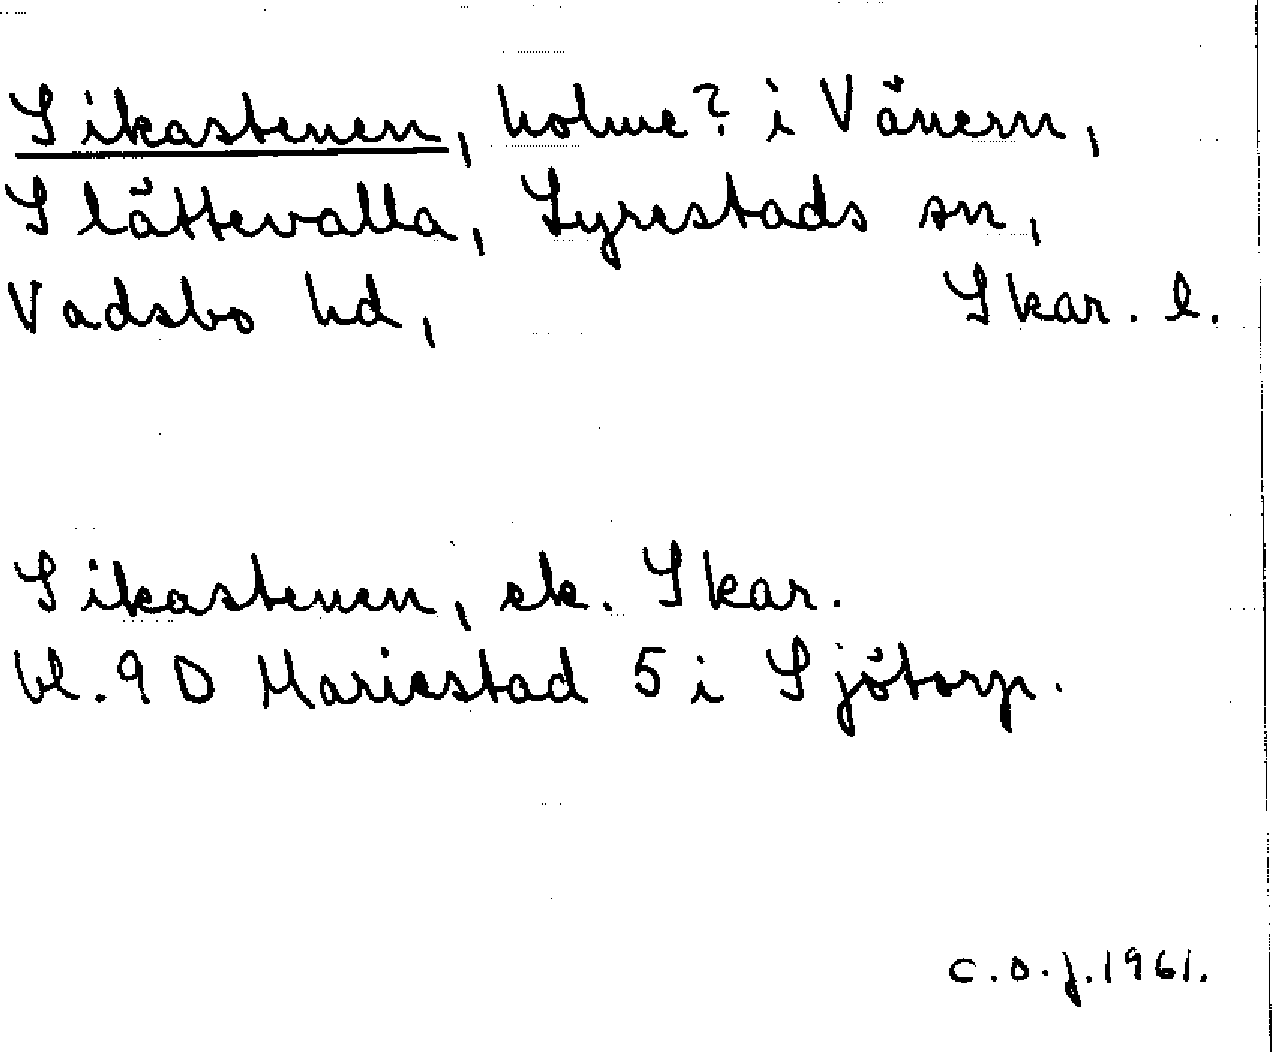 Sikastenen, holme? i Vänern,
Slättevalla, Lyrestads sn,
Vadsbo hd, Skar. l.
Sikastenen, ek. Skar.
bl. 9 D Mariestad 5 i Sjötorp.
C.O.J. 1961.